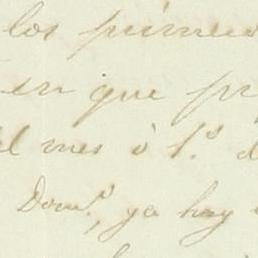 los primeros
en que pr
el mes ó 1.º d
Dom.º, ya hay